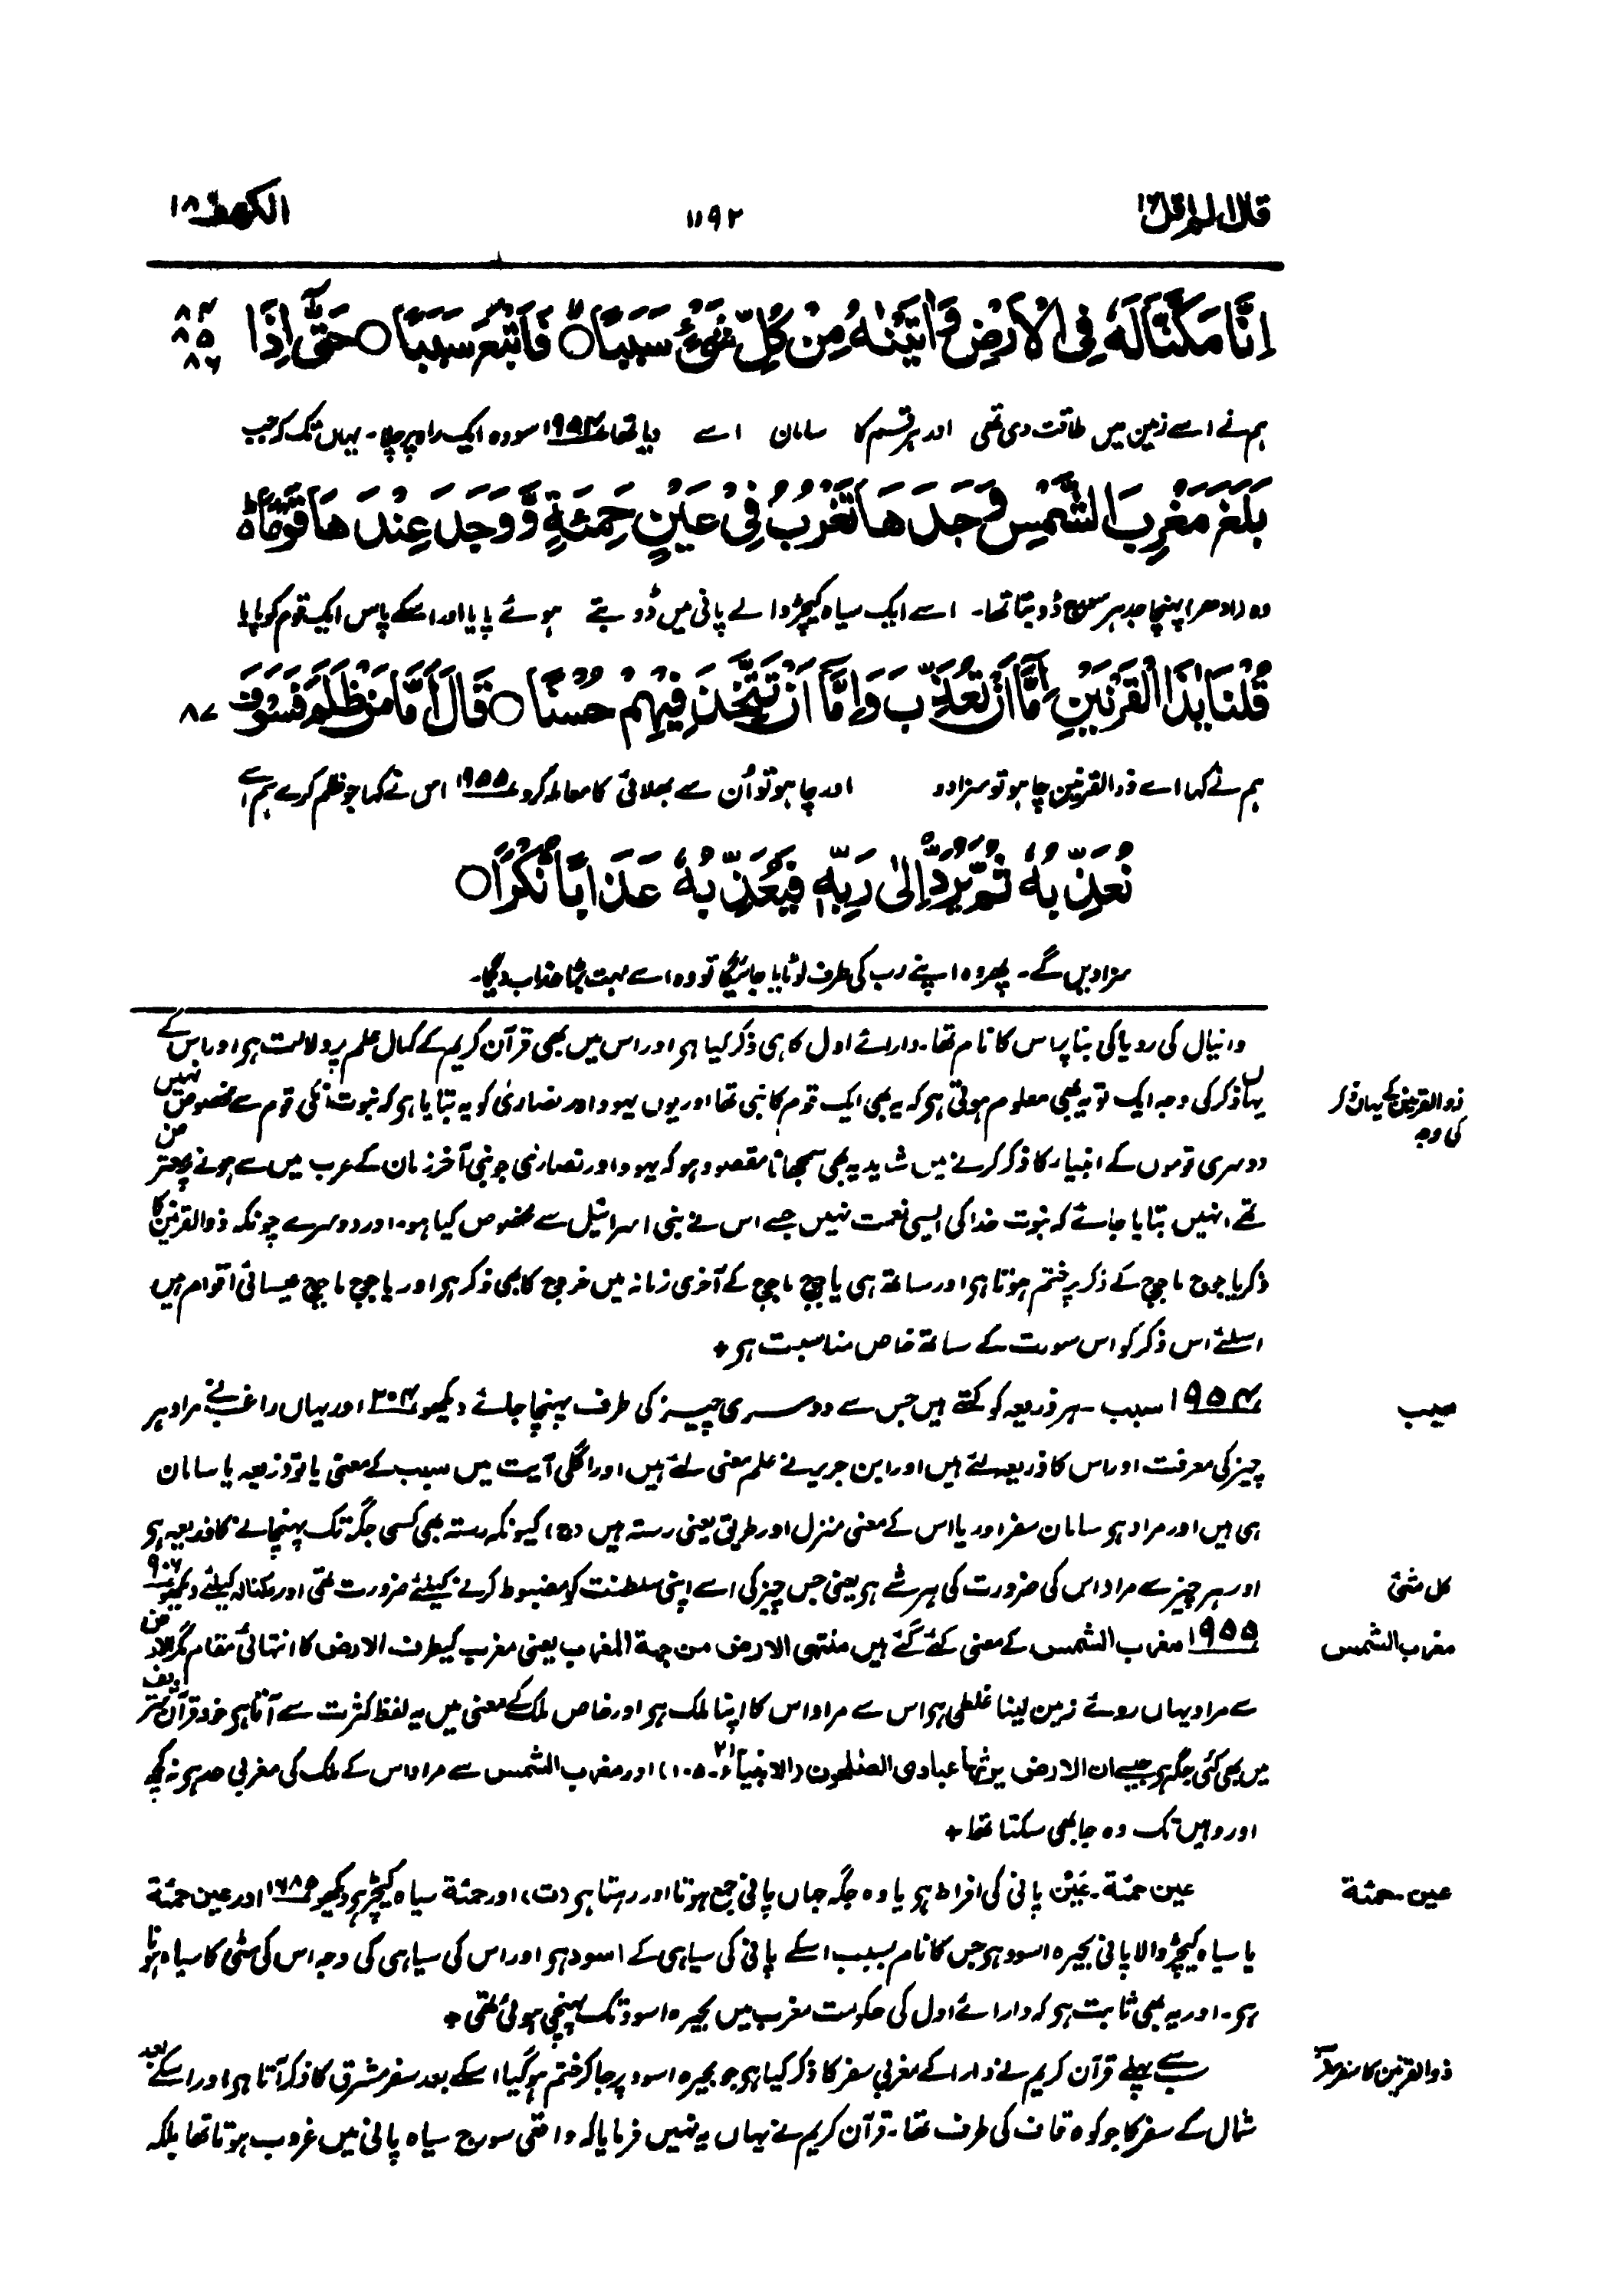 قال الم اقل ۱۶
۱۱۹۲
الكهف ۱۸
اِنَّا مَكَّنَّا لَهٗ فِی الْاَرْضِ وَ اٰتَیْنٰهُ مِنْ كُلِّ شَیْءٍ سَبَبًا ○ فَاَتْبَعَ سَبَبًا ○ حَتّٰۤی اِذَا
۸۴
۸۵
۸۶
ہم نے اسے زمین میں طاقت دی تھی اور ہر قسم کا سامان اسے دیا تھا ۱۹۵۴ سو وہ ایک راہ پر چلا۔ یہاں تک کہ جب
بَلَغَ مَغْرِبَ الشَّمْسِ وَجَدَهَا تَغْرُبُ فِیْ عَیْنٍ حَمِئَةٍ وَّ وَجَدَ عِنْدَهَا قَوْمًا ؕ
وہ (ادھر) پہنچا جدھر سورج ڈوبتا تھا۔ اسے ایک سیاہ کیچڑ والے پانی میں ڈوبتے ہوئے پایا اور اسکے پاس ایک قوم کو پایا
قُلْنَا یٰذَا الْقَرْنَیْنِ اِمَّاۤ اَنْ تُعَذِّبَ وَ اِمَّاۤ اَنْ تَتَّخِذَ فِیْهِمْ حُسْنًا ○ قَالَ اَمَّا مَنْ ظَلَمَ فَسَوْفَ
۸۷
ہم نے کہا اے ذوالقرنین چاہو تو سزا دو اور چاہو تو اُن سے بھلائی کا معاملہ کرو ۱۹۵۵ اس نے کہا جو ظلم کرے ہم اسے
نُعَذِّبُهٗ ثُمَّ یُرَدُّ اِلٰی رَبِّهٖ فَیُعَذِّبُهٗ عَذَابًا نُّكْرًا ○
سزا دیں گے۔ پھر وہ اپنے رب کی طرف لوٹایا جائیگا تو وہ اسے بہت بڑا عذاب دیگا۔
دانیال کی رویا کی بنا پر اس کا نام تھا۔ دارائے اول کا ہی ذکر کیا ہے اور اس میں بھی قرآن کریم کے کمال علم پر دلالت ہے اور اس کے
یہاں ذکر کی وجہ ایک تو یہ بھی معلوم ہوتی ہے کہ یہ بھی ایک قوم کا نبی تھا اور یوں یہود اور نصاریٰ کو یہ بتایا ہے کہ نبوت انکی قوم سے مخصوص نہیں
ذوالقرنین کے یہاں ذکر
کی وجہ
دوسری قوموں کے انبیاء کا ذکر کرنے میں شاید یہ بھی سمجھانا مقصود ہو کہ یہود اور نصاریٰ جو نبی آخر زمان کے عرب میں سے ہونے پر معترض
تھے انہیں بتایا جائے کہ نبوت خدا کی ایسی نعمت نہیں جسے اس نے بنی اسرائیل سے مخصوص کیا ہو۔ اور دوسرے چونکہ ذوالقرنین کا
ذکر یاجوج ماجوج کے ذکر پر ختم ہوتا ہے اور ساتھ ہی یاجوج ماجوج کے آخری زمانہ میں خروج کا بھی ذکر ہے اور یاجوج ماجوج عیسائی اقوام ہیں
اسلئے اس ذکر کو اس سورت کے ساتھ خاص مناسبت ہے +
۱۹۵۴ سبب۔ ہر ذریعہ کو کہتے ہیں جس سے دوسری چیز کی طرف پہنچا جائے دیکھو ۲۰۴ اور یہاں راغب نے مراد ہر
سبب
چیز کی معرفت اور اس کا ذریعہ لئے ہیں اور ابن جریر نے علم معنی لئے ہیں اور اگلی آیت میں سبب کے معنی یا تو ذریعہ یا سامان
ہی ہیں اور مراد ہے سامان سفر اور یا اس کے معنی منزل اور طریق یعنی رستہ ہیں (ج) کیونکہ رستہ بھی کسی جگہ تک پہنچانے کا ذریعہ ہے
اور ہر چیز سے مراد اس کی ضرورت کی ہر شے ہے یعنی جس چیز کی اسے اپنی سلطنت کو مضبوط کرنے کیلئے ضرورت تھی اور مکنا لہ کیلئے دیکھو ۹۰۶
کل شئ
۱۹۵۵ مغرب الشمس کے معنی کئے گئے ہیں منتہی الارض من جہة المغرب یعنی مغرب کیطرف الارض کا انتہائی مقام مگر الارض
مغرب الشمس
سے مراد یہاں روئے زمین لینا غلطی ہے اس سے مراد اس کا اپنا ملک ہے اور خاص ملک کے معنی میں یہ لفظ کثرت سے آتا ہے خود قرآن شریف
میں بھی کئی جگہ ہے جیسے ان الارض یرثها عبادی الصٰلحون (الانبیاء ۲۱۔۱۰۵) اور مغرب الشمس سے مراد اس کے ملک کی مغربی حد ہے نہ کچھ
اور وہیں تک وہ جا بھی سکتا تھا +
عین حمئة۔ عَیْن پانی کی افراط ہے یا وہ جگہ جہاں پانی جمع ہوتا اور رہتا ہے (ت) اور حمئة سیاہ کیچڑ ہے دیکھو ۱۶۸۵ اور عین حمئة
عین۔ حمئة
یا سیاہ کیچڑ والا پانی بحیرہ اسود ہے جس کا نام بسبب اسکے پانی کی سیاہی کے اسود ہے اور اس کی سیاہی کی وجہ اس کی مٹی کا سیاہ ہونا
ہے۔ اور یہ بھی ثابت ہے کہ دارائے اول کی حکومت مغرب میں بحیرہ اسود تک پہنچی ہوئی تھی +
سب سے پہلے قرآن کریم نے دارا کے مغربی سفر کا ذکر کیا ہے جو بحیرہ اسود پر جا کر ختم ہو گیا اسکے بعد سفر مشرق کا ذکر آتا ہے اور اسکے بعد
ذوالقرنین کا سفر
شمال کے سفر کا جو کوہ قاف کی طرف تھا۔ قرآن کریم نے یہاں یہ نہیں فرمایا کہ واقعی سورج سیاہ پانی میں غروب ہوتا تھا بلکہ